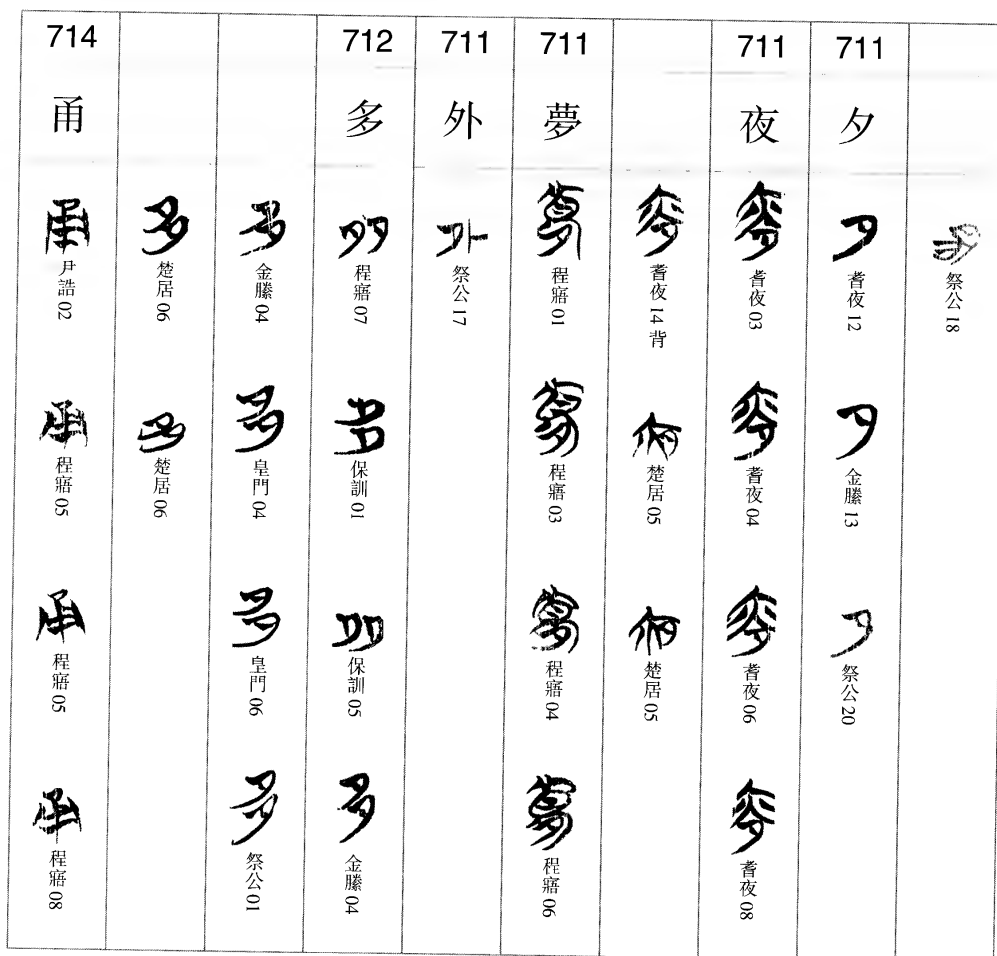 祭公 18
711
夕
耆夜 12
金縢 13
祭公 20
711
夜
耆夜 03
耆夜 04
耆夜 06
耆夜 08
耆夜 14 背
楚居 05
楚居 05
711
夢
程寤 01
程寤 03
程寤 04
程寤 06
711
外
祭公 17
712
多
程寤 07
保訓 01
保訓 05
金縢 04
金縢 04
皇門 04
皇門 06
祭公 01
楚居 06
楚居 06
714
甬
尹誥 02
程寤 05
程寤 05
程寤 08